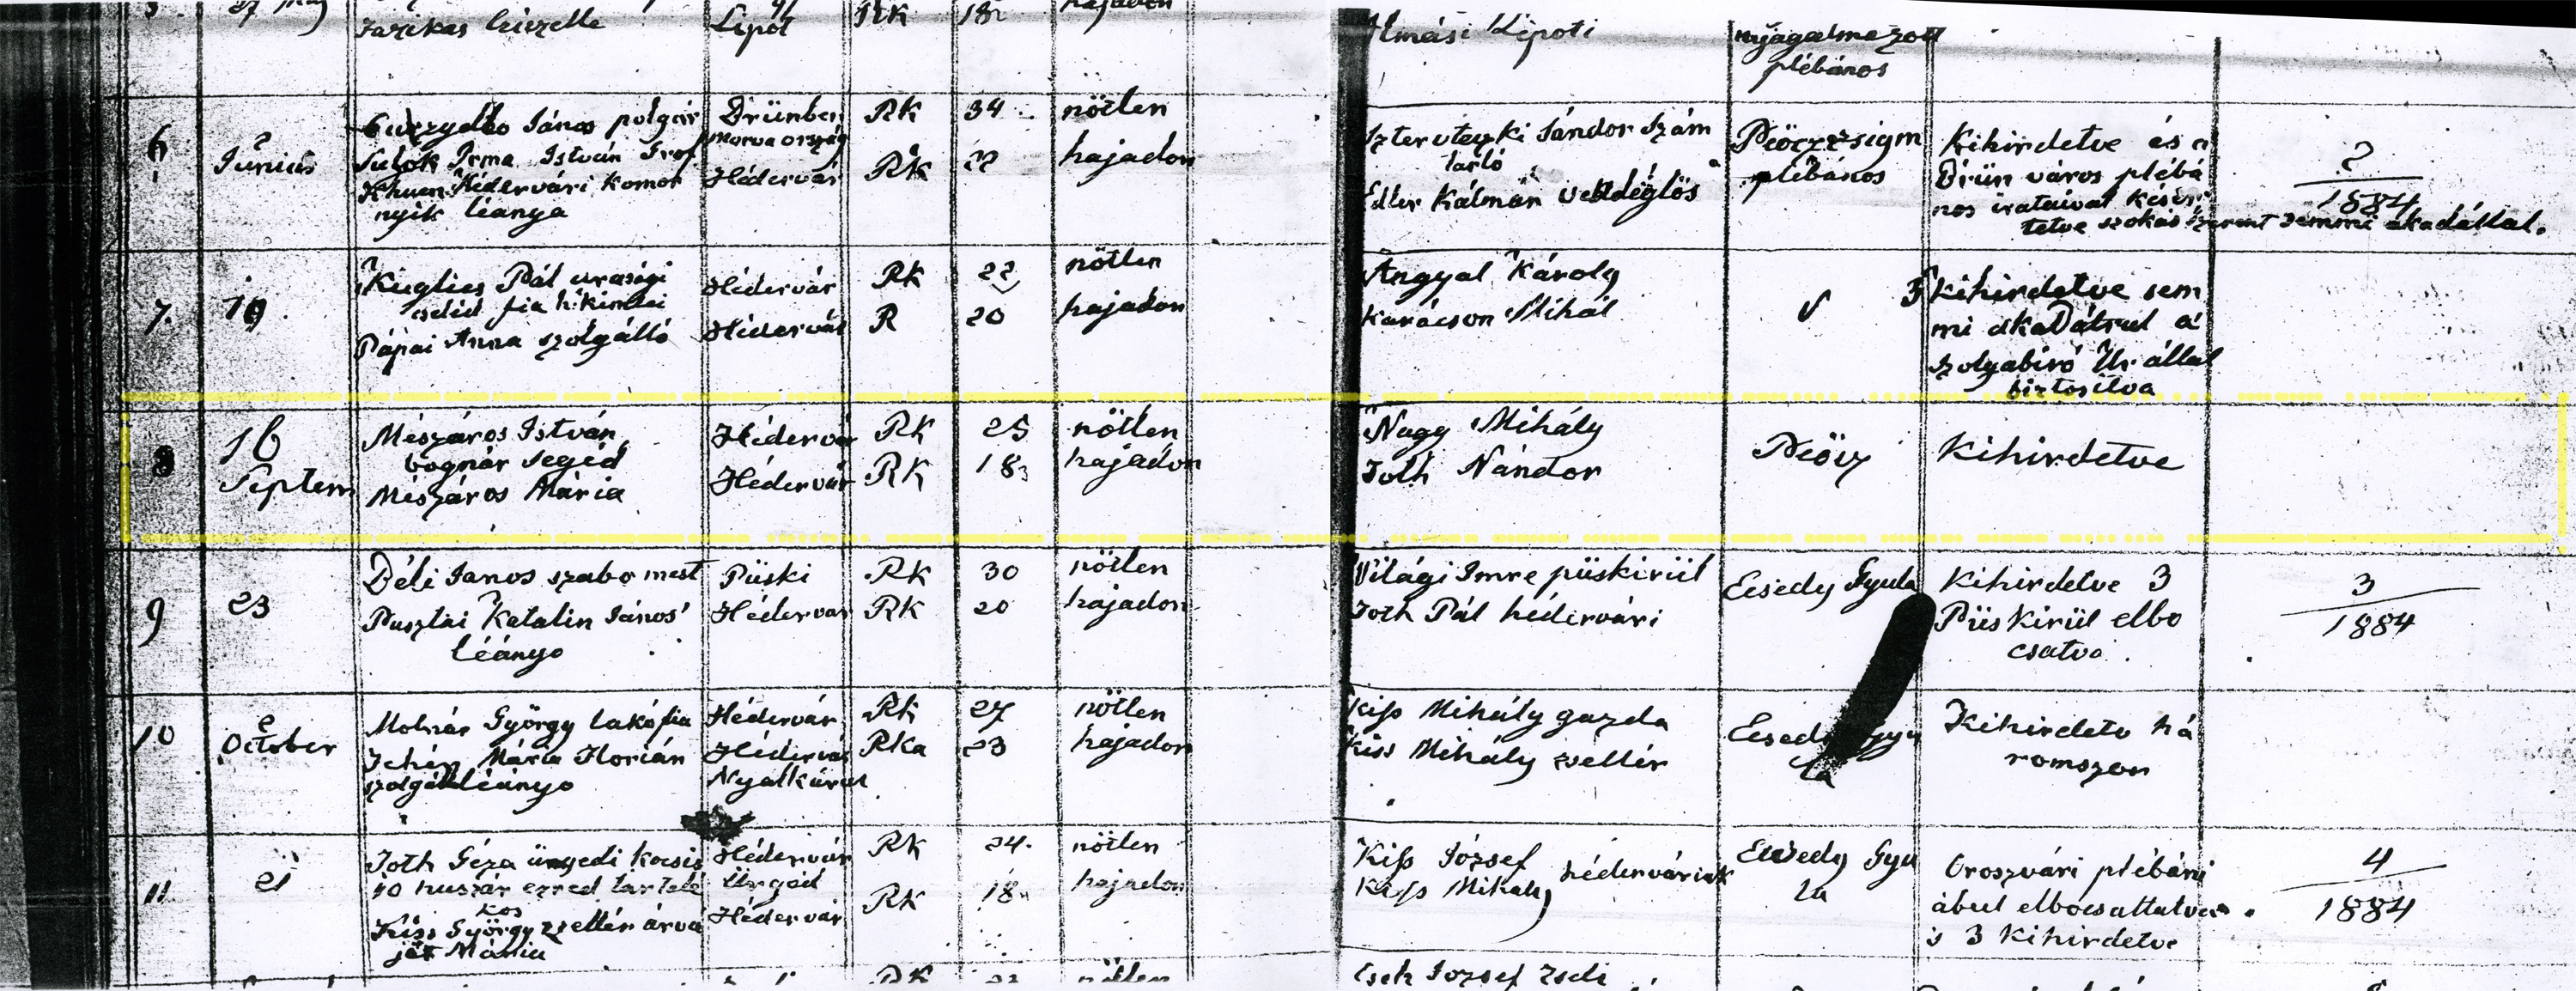 27
Lipót
RK
18
hajadon
Almási Lipóti
nyugalmazott
plébános
6
Június
János polgár
Sulok Irma István Grof
Khuen Hédervári Komor
nyik léanya
Brünben
Morva ország
Hédervár
RK
RK
34
22
nötlen
hajadon
Sándor Szám
tartó
Edler Kálmán vendéglös
plébános
Kihirdetve és a
Brün város plébá
nos irataival késér
tetve szokás szerent semmi akadállal.
2
1884
7.
10
Kuglics Pál urasági
cseléd fia
Pápai Anna szolgálló
Hédervár
Hédervár
RK
R
22
20
nötlen
hajadon
Angyal Károly
Karácson Mihál
kihirdetve sem
mi akadálrul a
szolgabiró Ur által
biztosilva
8
16
Septem
Mészáros István
bognár segéd
Mészáros Mária
Hédervár
Hédervár
RK
RK
25
18
nötlen
hajadon
Nagy Mihály
Toth Nándor
Kihirdetve
9
23
Déli János szabo mest
Pusztai Katalin János
léányo
Püski
Hédervár
RK
RK
30
20
nötlen
hajadon
Világi Imre püskirül
Toth Pál hédervári
Ecsedy Gyula
Kihirdetve 3
Püskirül elbo
csatva.
3
1884
10
October
Molnár György lakó fia
Mária Florián
szolgálléányo
Hédervár
Hédervár
Nyalkárul
RK
RKa
27
23
nötlen
hajadon
Kiss Mihály gazda
Kiss Mihály zsellér
Kihirdetv há
romszor
11
21
Toth Géza üregedi kocsis
10 huszár ezred tartalé
kos
Kiss György zsellér árvá
ját Mária
Hédervár
Ürgéd
Hédervár
RK
RK
24.
18
nötlen
hajadon
Kiss József
Kiss Mihály
hédervárink
Ecsedy Gyu
la
Oroszvári plébáni
ábul elbocsattatva
is 3 kihirdetve
4
1884
RK
nötlen
József Zseli